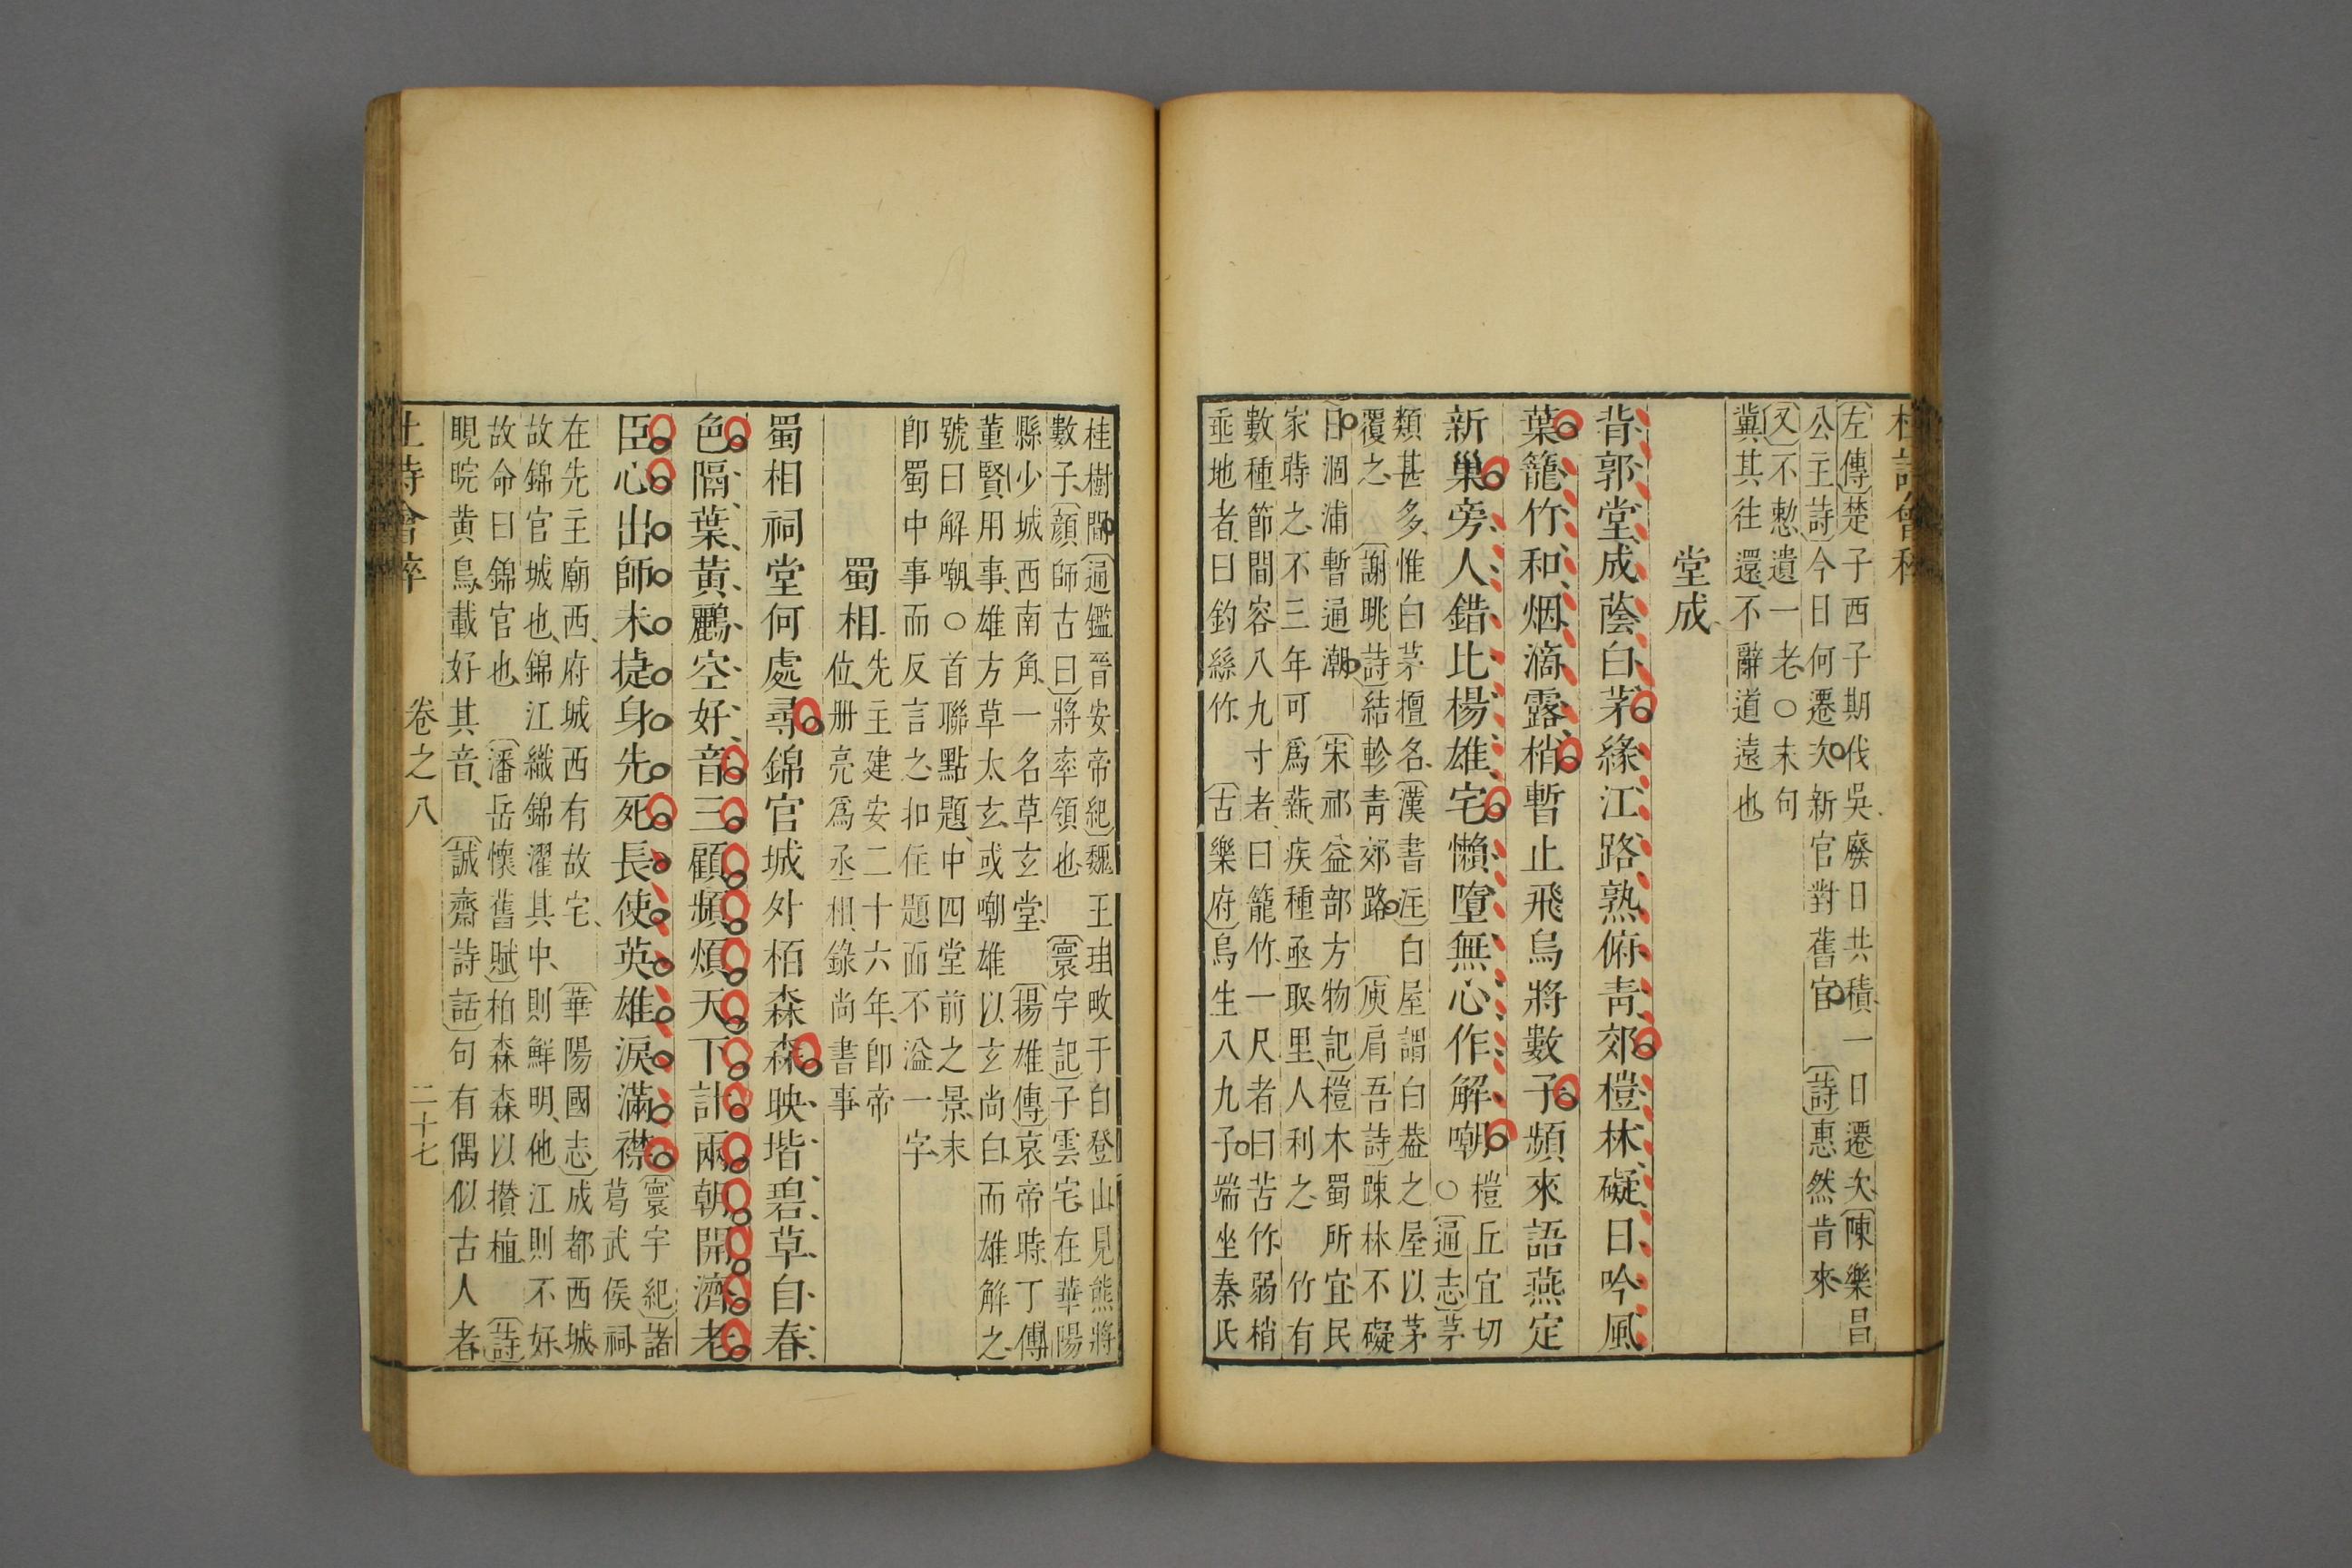 左傳楚子西子期伐吳廢日共積一日遷次陳樂昌
公主詩今日何遷次新官對舊官 詩惠然肯來
又不憖遺一老○末句
冀其往還不辭道遠也
堂成
背郭堂成蔭白茅緣江路熟俯青郊榿林礙日吟風
葉籠竹和烟滴露梢暫止飛烏將數子頻來語燕定
新巢旁人錯比楊雄宅懶墮無心作解嘲
榿丘宜切
○通志茅
類甚多惟白茅檀名漢書注白屋謂白葢之屋以茅
覆之 謝眺詩結軫青郊路 庾肩吾詩踈林不礙
日洞浦暫通潮 宋祁益部方物記榿木蜀所宜民
家蒔之不三年可爲薪疾種亟取里人利之 竹有
數種節間容八九寸者曰籠竹一尺者曰苦竹弱梢
垂地者曰釣絲竹 古樂府烏生八九子端坐秦氏
桂樹間通鑑晉安帝紀魏王珪畋于白登山見熊將
數子顔師古曰將率領也 寰宇記子雲宅在華陽
縣少城西南角一名草玄堂 揚雄傳哀帝時丁傅
董賢用事雄方草太玄或嘲雄以玄尚白而雄解之
號曰解嘲○首聯點題中四堂前之景末
卽蜀中事而反言之扣住題面不溢一字
蜀相
先主建安二十六年卽帝
位册亮爲丞相錄尚書事
蜀相祠堂何處尋錦官城外栢森森映堦碧草自春
色隔葉黃鸝空好音三顧頻煩天下計兩朝開濟老
臣心出師未捷身先死長使英雄淚滿襟
寰宇紀諸
葛武侯祠
在先主廟西府城西有故宅 華陽國志成都西城
故錦官城也錦江織錦濯其中則鮮明他江則不好
故命曰錦官也 潘岳懷舊賦柏森森以攅植 詩
睍睆黃鳥載好其音 誠齋詩話句有偶似古人者
卷之八
二十七